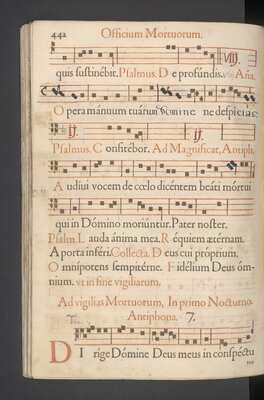 442 Officium Mortuorum.
VIII.
quis sustinébit. Psalmus. D e profúndis. Aña.
O pera mánuum tuárum Domine ne despícias.
Psalmus. C onfitébor. Ad Magnificat, Antiph.
A udíui vocem de cœlo dicéntem beáti mórtui
qui in Dómino moriúntur. Pater noster.
Psalm. L auda ánima mea. R équiem ætérnam.
A porta ínferi. Collecta. D eus cui próprium.
O mnípotens sempitérne. F idélium Deus óm-
nium. vt in fine vigiliarum.
Ad vigilias Mortuorum, In primo Nocturno.
Antiphona. 7.
D I rige Dómine Deus meus in conspéctu